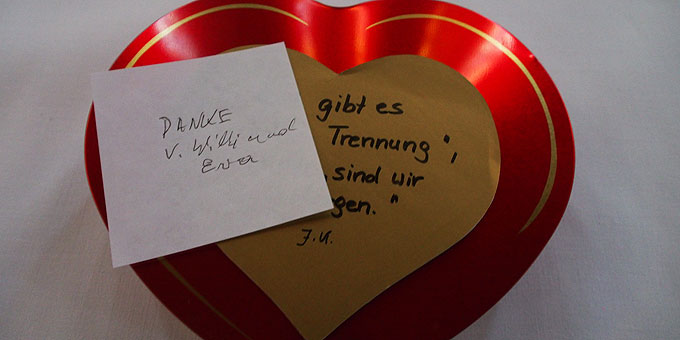 DANKE
v. Willi und
Erer
gibt es
Trennung",
sind wir
gen."
J.K.